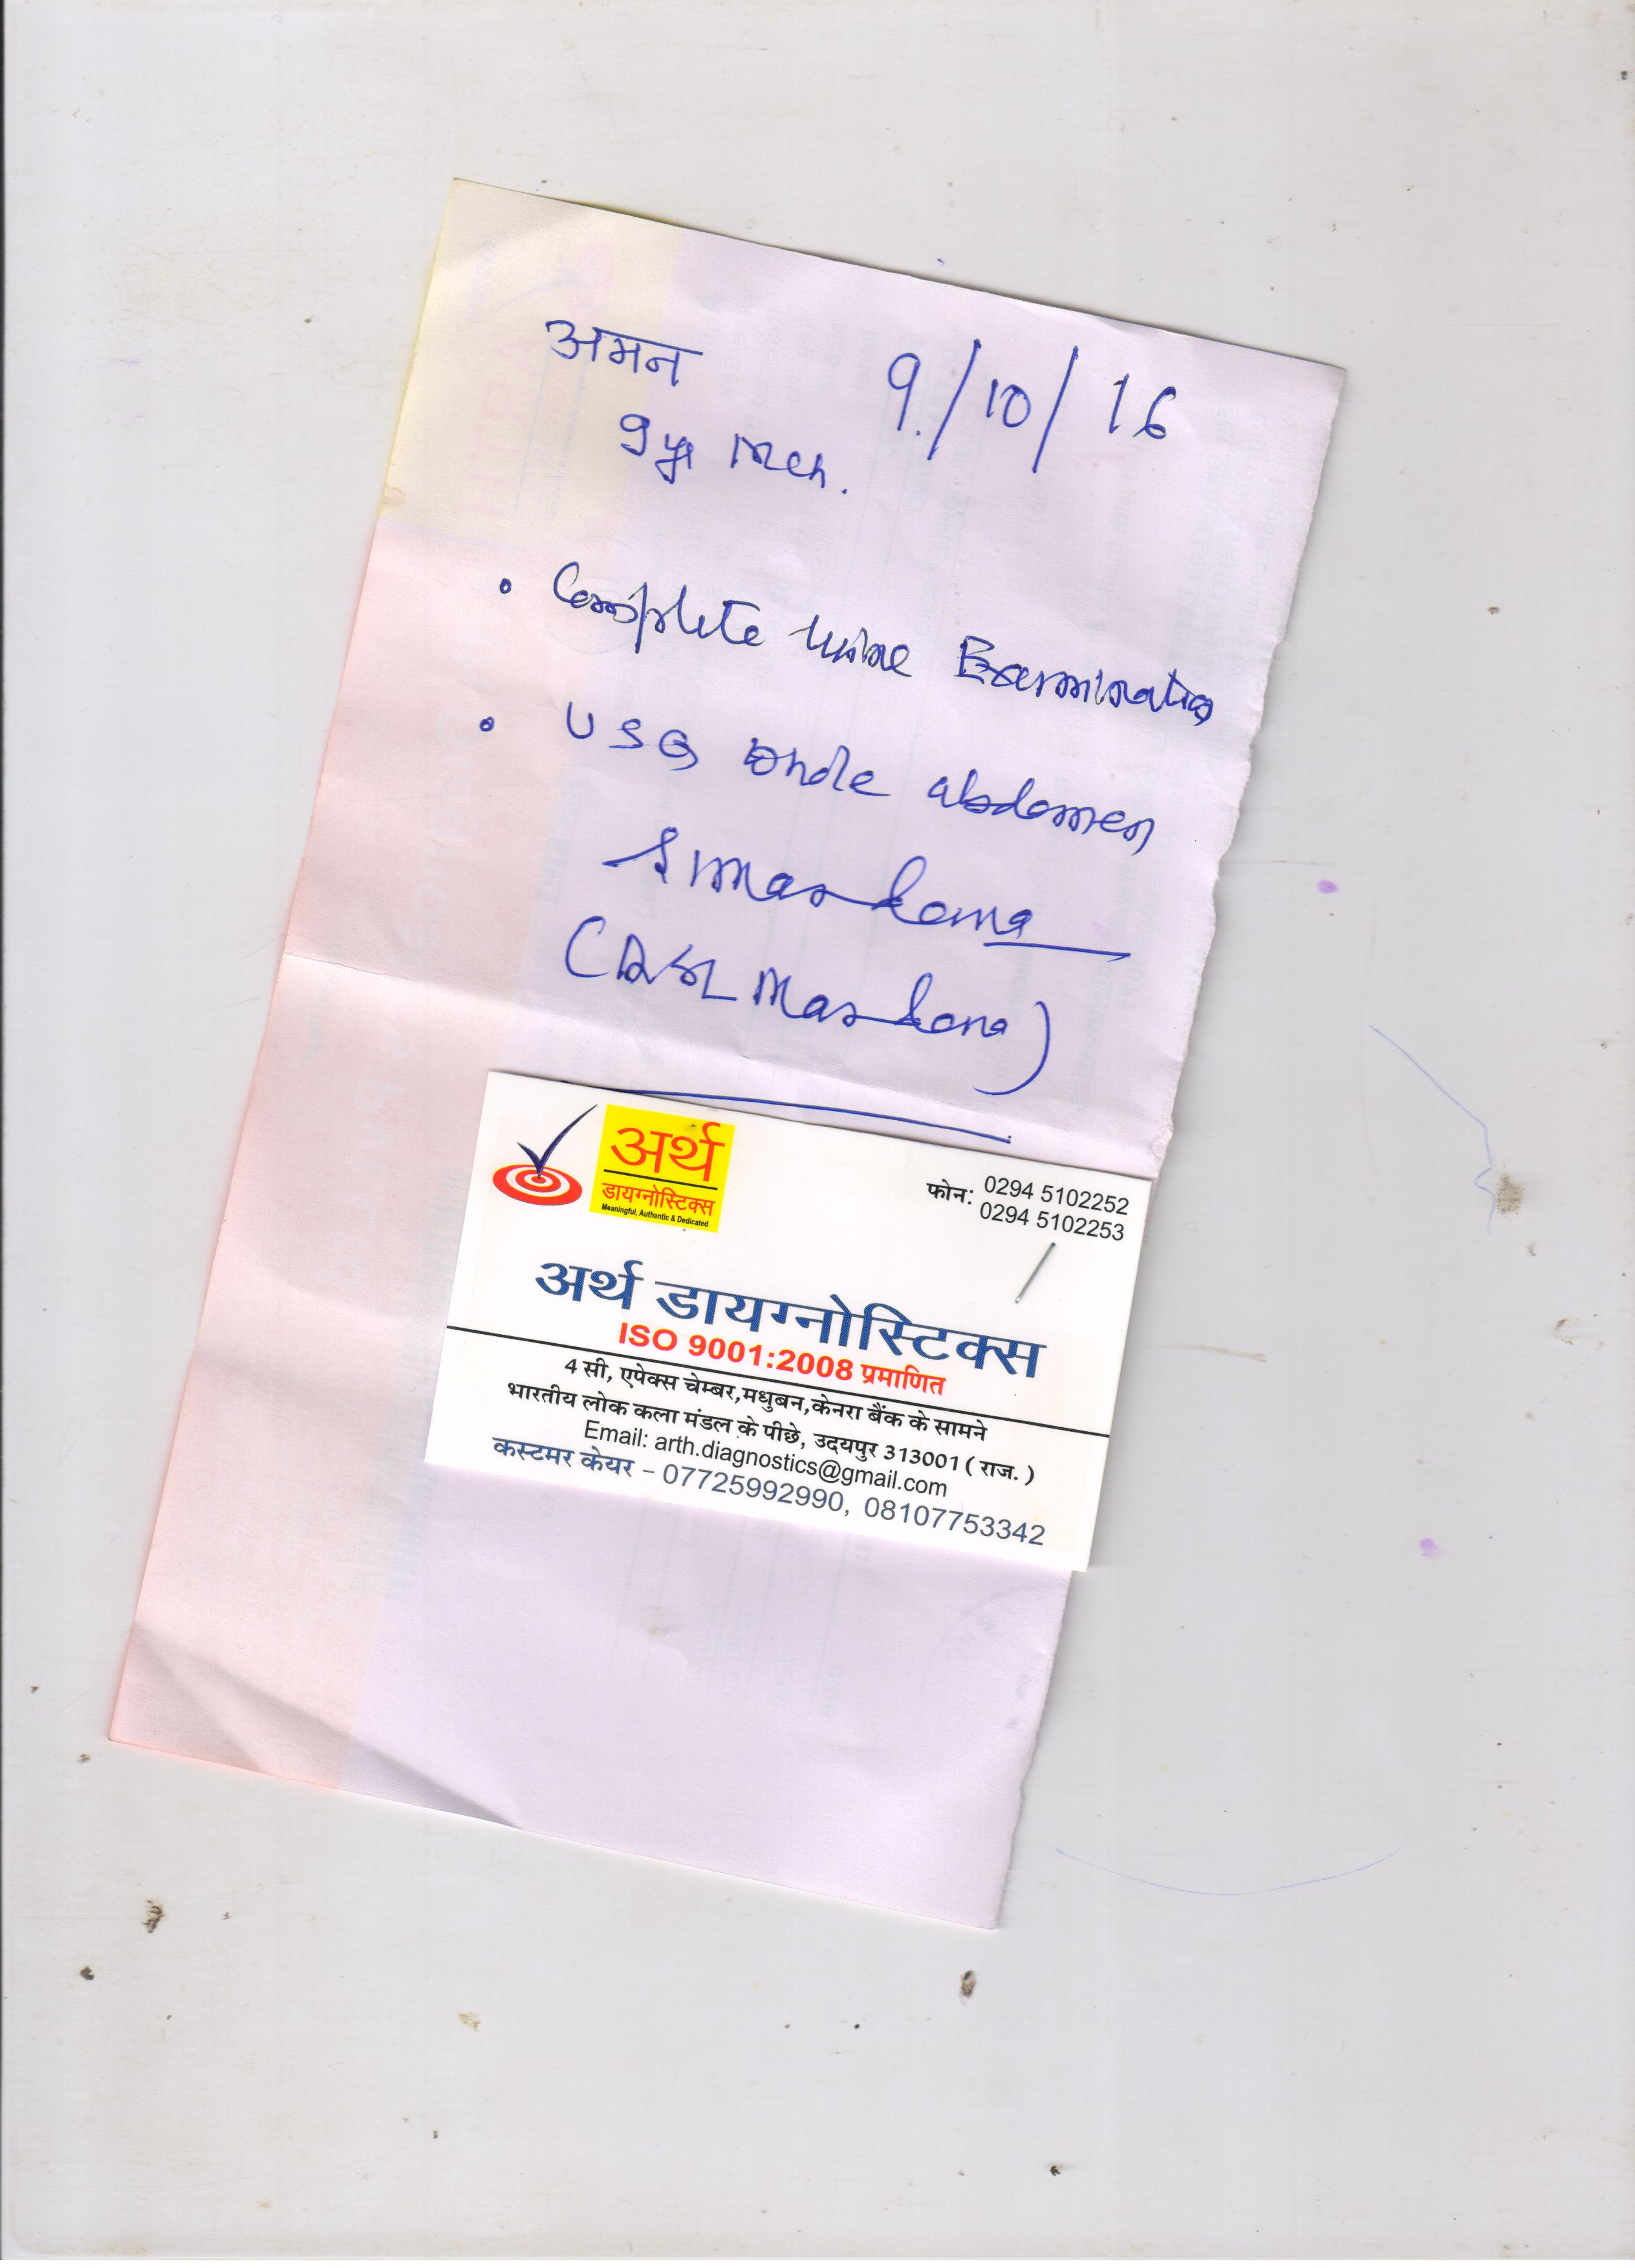 अमन 9/10/16
9yr Mch.
• Complete Urine Examination
• USG whole abdomen
अर्थ
डायग्नोस्टिक्स
Meaningful, Authentic & Dedicated
फोन: 0294 5102252
0294 5102253
अर्थ डायग्नोस्टिक्स
ISO 9001:2008 प्रमाणित
4 सी, एपेक्स चेम्बर,मधुबन,केनरा बैंक के सामने
भारतीय लोक कला मंडल के पीछे, उदयपुर 313001 ( राज. )
Email: arth.diagnostics@gmail.com
कस्टमर केयर – 07725992990, 08107753342